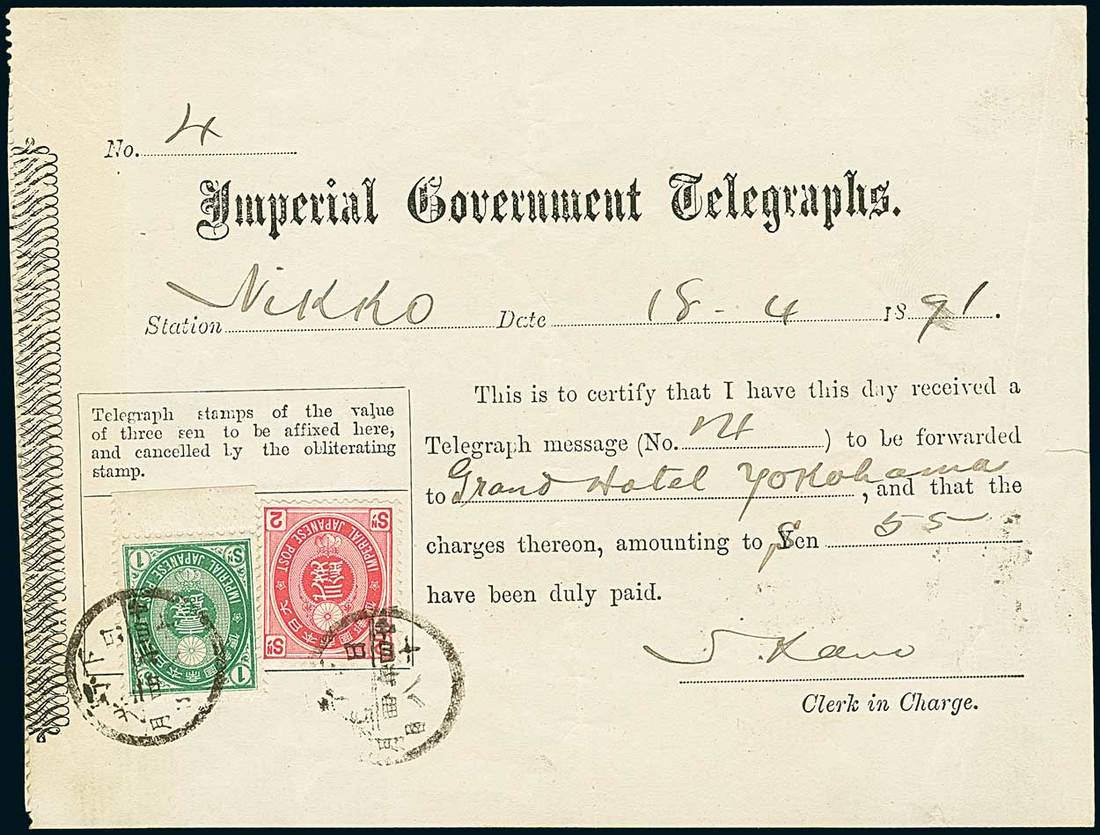 No. 4
Imperial Government Telegraphs.
Station Nikko Date 18-4 1891.
This is to certify that I have this day received a
Telegraph message (No. ) to be forwarded
to Grand Hotel Yokohama, and that the
charges thereon, amounting to Sen 55
have been duly paid.
Kano
Clerk in Charge.
Telegraph stamps of the value
of three sen to be affixed here,
and cancelled by the obliterating
stamp.
1 SN
IMPERIAL JAPANESE POST
1
SN 2
IMPERIAL JAPANESE POST
大日本帝國郵便
SN